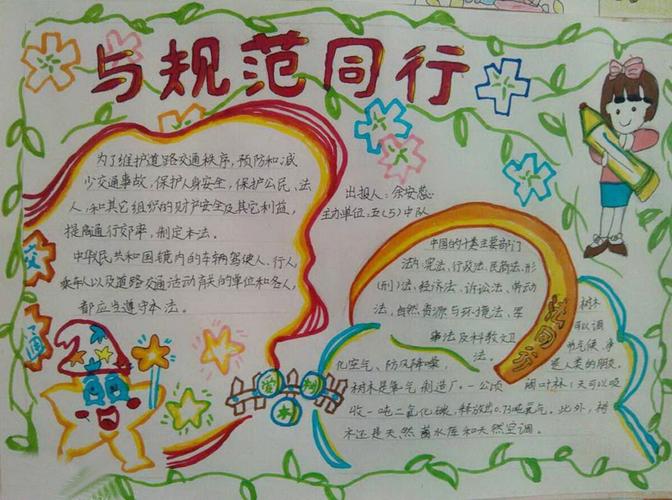 与规范同行
为了维护道路交通秩序，预防和减
少交通事故，保护人身安全，保护公民、法
人，和其它组织的财产安全及其它利益，
提高通行效率，制定本法。
中华民共和国镜内的车辆驾使人、行人，
乘车人以及道路交通活动有关的单位和各人，
都应当遵守本法。
出报人：余安蕊
主办单位：五(5)中队
中国的十套主要部门
法：宪法、行政法、民商法、形
(刑)法、经济法、诉讼法、劳动
法、自然资源与环境法、军
事法及科教文卫
法。
法同行
交
通
爱树木
树木
可以调
节气候、净
化空气、防风降噪，是人类的朋友。
树木是氧气制造厂，一公顷阔叶林1天可以吸
收一吨二氧化碳，释放出0.73吨氧气。此外，树
木还是天然蓄水库和天然空调。